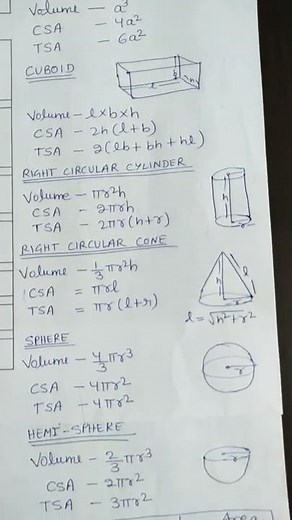 Volume — a³
CSA — 4a²
TSA — 6a²
CUBOID
Volume – l×b×h
CSA – 2h(l+b)
TSA – 2(lb+bh+hl)
RIGHT CIRCULAR CYLINDER
Volume – πr²h
CSA – 2πrh
TSA – 2πr(h+r)
RIGHT CIRCULAR CONE
Volume – 1/3 πr²h
CSA = πrl
TSA = πr(l+r)
l = √h²+r²
SPHERE
Volume – 4/3 πr³
CSA – 4πr²
TSA – 4πr²
HEMI-SPHERE
Volume – 2/3 πr³
CSA – 2πr²
TSA – 3πr²
Area